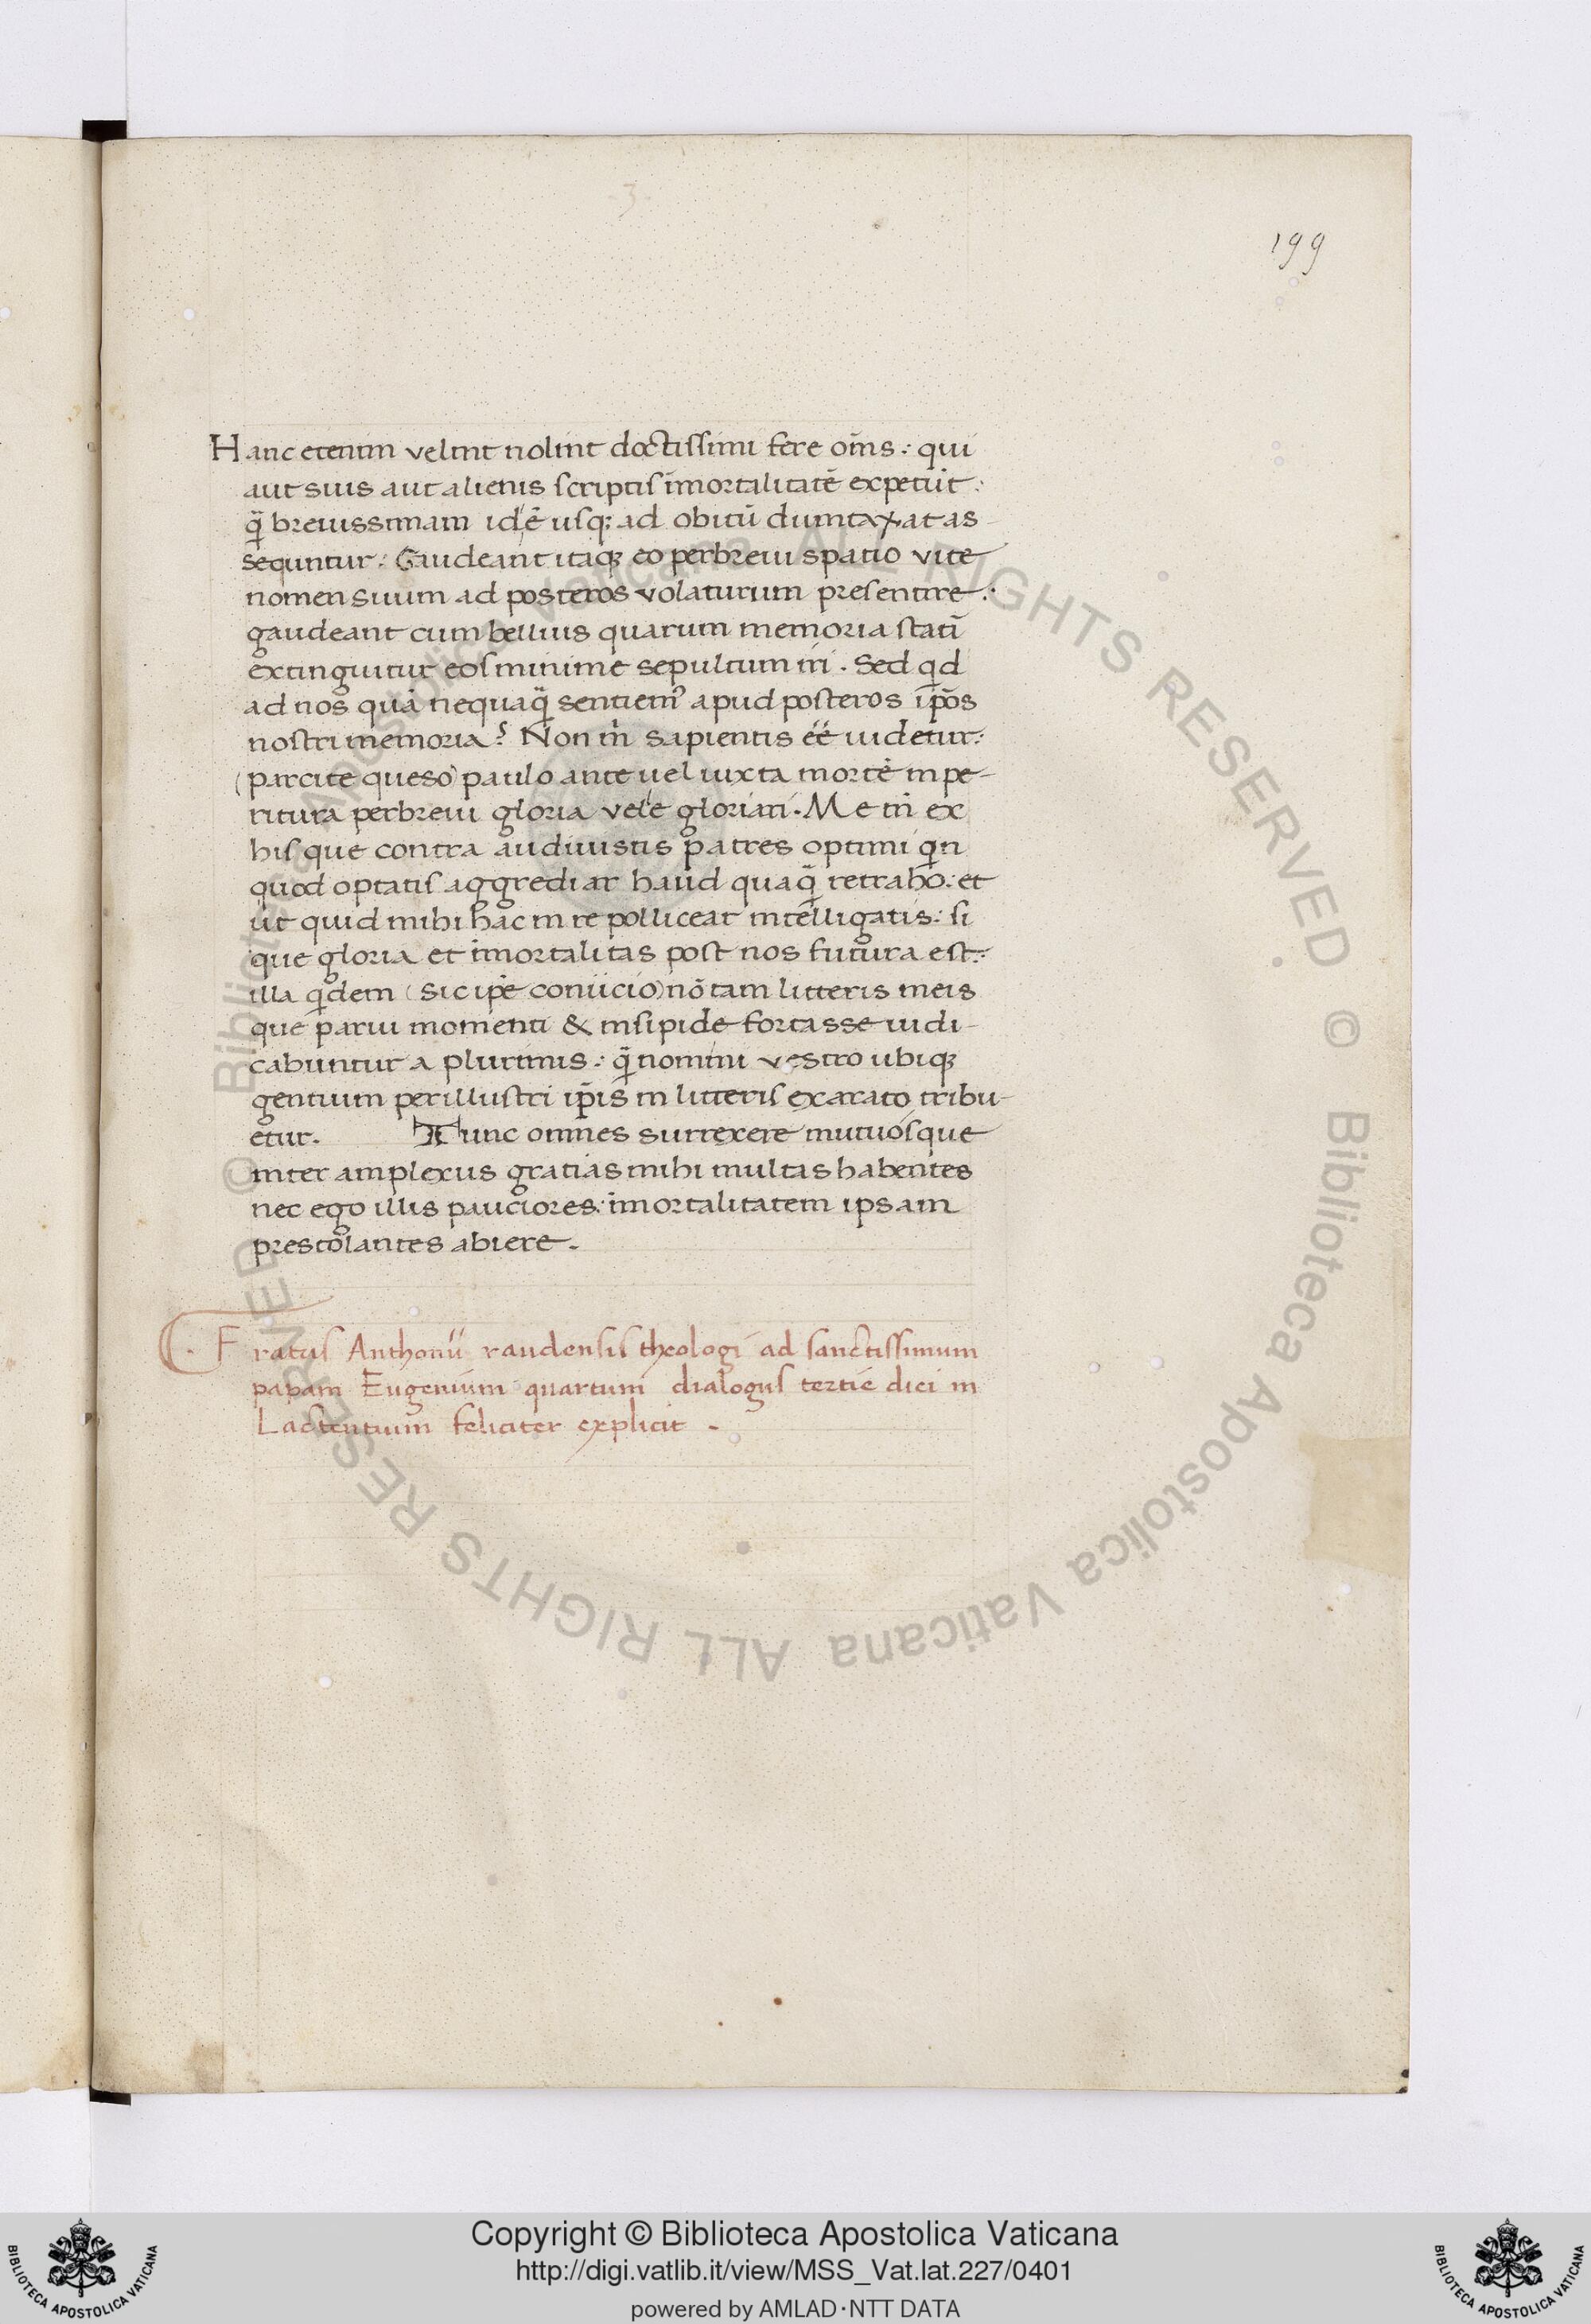 3
199
Hanc etenim velint nolint doctissimi fere om̄s: qui
aut suis aut alienis scriptis īmortalitatē expetūt:
q̄ breuissimam idē usq; ad obitū dumtaxat as
sequntur: Gaudeant itaq; eo perbreui spatio vite
nomen suum ad posteros volaturum presentire:
gaudeant cum belluis quarum memoria statī
extinguitur eos minime sepultum iri. Sed qd
ad nos qua nequaq̄ sentiem⁹ apud posteros ip̄os
nostri memoria? Non m̄ sapientis eē uidetur:
(parcite queso) paulo ante uel iuxta mortē in pe-
ritura perbreui gloria vele gloriari. Me tn̄ ex
his que contra audiuistis patres optimi qin
quod optatis aggrediar haud quaq̄ retraho: et
ut quid mihi hac in re pollicear intelligatis: si
que gloria et īmortalitas post nos futura est:
illa qdem (sic ip̄e coniicio) nō tam litteris meis
que parui momenti & insipide fortasse iudi-
cabuntur a plurimis: q̄ nomini vestro ubiq;
gentium perillustri ip̄is in litteris exarato tribu-
etur. Tunc omnes surrexere mutuosque
inter amplexus gratias mihi multas habentes
nec ego illis pauciores: īmortalitatem ipsam
prestolantes abiere.
Fratris Anthonii raudensis theologi ad sanctissimum
papam Eugenium quartum dialogus tertie diei in
Lactentium feliciter explicit.
© Biblioteca Apostolica Vaticana ALL RIGHTS RESERVED © Biblioteca Apostolica Vaticana ALL RIGHTS RESERVED
Copyright © Biblioteca Apostolica Vaticana
http://digi.vatlib.it/view/MSS_Vat.lat.227/0401
powered by AMLAD·NTT DATA
BIBLIOTECA APOSTOLICA VATICANA
BIBLIOTECA APOSTOLICA VATICANA